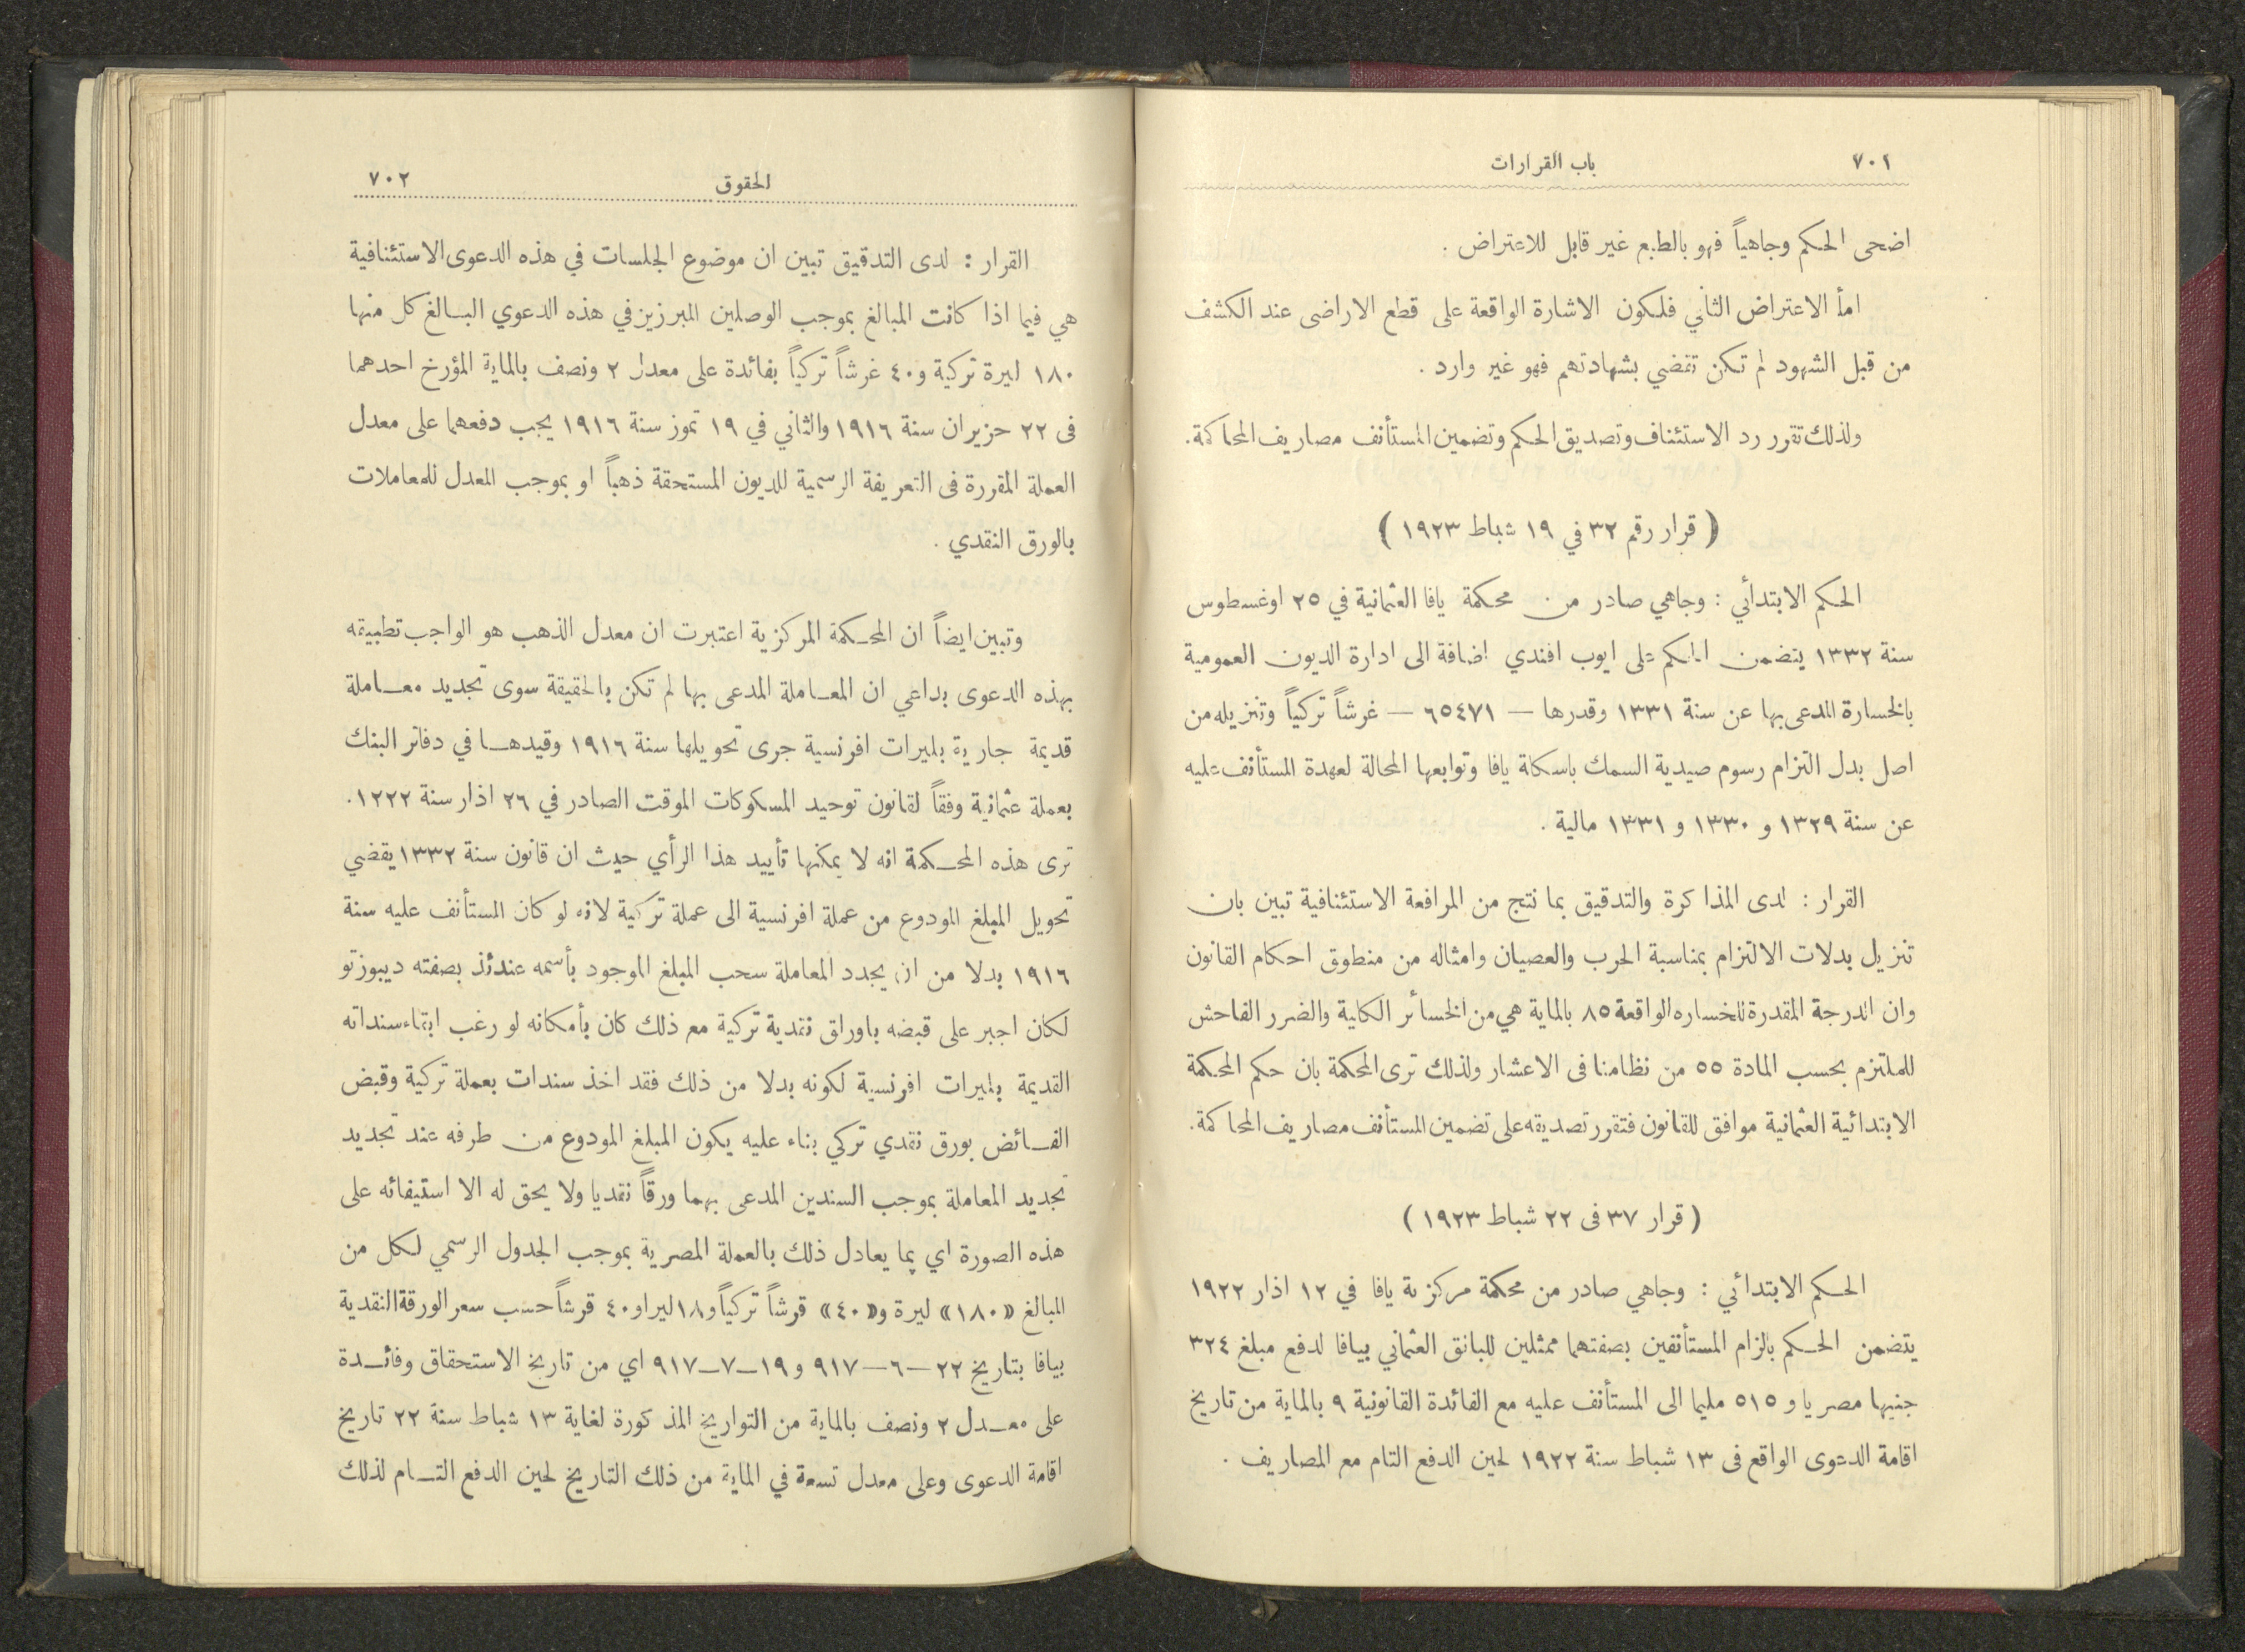 ٧٠١ باب القرارات
اضحى الحكم وجاهياً فهو بالطبع غير قابل للاعتراض .
امأ الاعتراض الثاني فلكون الاشارة الواقعة على قطع الاراضى عند الكشف
من قبل الشهود لم تكن تقضي بشهادتهم فهو غير وارد .
ولذلك تقرر رد الاستئناف وتصديق الحكم وتضمين المستأنف مصاريف المحاكمة.
( قرار رقم ٣٢ في ١٩ شباط ١٩٢٣ )
الحكم الابتدأي : وجاهي صادر من محكمة يافا العثمانية في ٢٥ اوغسطوس
سنة ١٣٣٢ يتضمن الحكم على ايوب افندي اضافة الى ادارة الديون العمومية
بالخسارة المدعى بها عن سنة ١٣٣١ وقدرها — ٦٥٤٧١ — غرشاً تركياً وتنزيله من
اصل بدل التزام رسوم صيدية السمك باسكلة يافا وتوابعها المحالة لعهدة المستأنف عليه
عن سنة ١٣٢٩ و ١٣٣٠ و ١٣٣١ مالية .
القرار : لدى المذاكرة والتدقيق بما نتج من المرافعة الاستئنافية تبين بان
تنزيل بدلات الالتزام بمناسبة الحرب والعصيان وامثاله من منطوق احكام القانون
وان الدرجة المقدرة للخساره الواقعة ٨٥ بالماية هي من الخسأر الكلية والضرر الفاحش
للملتزم بحسب المادة ٥٥ من نظامنا فى الاعشار ولذلك ترى المحكمة بان حكم المحكمة
الابتدائية العثمانية موافق للقانون فتقرر تصديقه على تضمين المستأنف مصاريف المحاكمة.
( قرار ٣٧ فى ٢٢ شباط ١٩٢٣ )
الحكم الابتدائي : وجاهي صادر من محكمة مركزية يافا في ١٢ اذار ١٩٢٢
يتضمن الحكم بالزام المستأنفين بصفتهما ممثلين للبانق العثماني بيافا لدفع مبلغ ٣٢٤
جنيها مصريا و ٥١٥ مليما الى المستأنف عليه مع الفائدة القانونية ٩ بالماية من تاريخ
اقامة الدعوى الواقع فى ١٣ شباط سنة ١٩٢٢ لحين الدفع التام مع المصاريف .
الحقوق ٧٠٢
القرار : لدى التدقيق تبين ان موضوع الجلسات في هذه الدعوى الاستئنافية
هي فيما اذا كانت المبالغ بموجب الوصلين المبرزين في هذه الدعوي البـالغ كل منها
١٨٠ ليرة تركية و ٤٠ غرشاً تركياً بفائدة على معدل ٢ ونصف بالماية المؤرخ احدهما
فى ٢٢ حزيران سنة ١٩١٦ والثاني في ١٩ تموز سنة ١٩١٦ يجب دفعهما على معدل
العملة المقررة فى التعريفة الرسمية للديون المستحقة ذهباً او بموجب المعدل للمعاملات
بالورق النقدي .
وتبين ايضاً ان المحـكمة المركزية اعتبرت ان معدل الذهب هو الواجب تطبيقه
بهذه الدعوى بداعي ان المعـاملة المدعى بها لم تكن بالحقيقة سوى تجديد معـاملة
قديمة جارية بليرات افرنسية جرى تحويلها سنة ١٩١٦ وقيدهـا في دفاتر البنك
بعملة عثمانية وفقاً لقانون توحيد المسكوكات الموقت الصادر في ٢٦ اذار سنة ١٢٢٢.
ترى هذه المحـكمة انه لا يمكنها تأييد هذا الرأي حيث ان قانون سنة ١٣٣٢ يقضي
تحويل المبلغ المودوع من عملة افرنسية الى عملة تركية لانه لو كان المستأنف عليه سنة
١٩١٦ بدلا من ان يجدد المعاملة سحب المبلغ الموجود بأسمه عندئذ بصفته ديبوزتو
لكان اجبر على قبضه باوراق نقدية تركية مع ذلك كان بأمكانه لو رغب ابقاء سنداته
القديمة بليرات افرنسية لكونه بدلا من ذلك فقد اخذ سندات بعملة تركية وقبض
الفـائض بورق نقدي تركي بناء عليه يكون المبلغ المودوع من طرفه عند تجديد
تجديد المعاملة بموجب السندين المدعى بهما ورقاً نقديا ولا يحق له الا استيفائه على
هذه الصورة اي بما يعادل ذلك بالعملة المصرية بموجب الجدول الرسمي لكل من
المبالغ «١٨٠» ليرة و«٤٠» قرشاً تركياً و١٨ ليرا و٤٠ قرشاً حسب سعر الورقة النقدية
بيافا بتاريخ ٢٢—٦—٩١٧ و ١٩—٧—٩١٧ اي من تاريخ الاستحقاق وفائـدة
على معـدل ٢ ونصف بالماية من التواريخ المذكورة لغاية ١٣ شباط سنة ٢٢ تاريخ
اقامة الدعوى وعلى معدل تسعة في الماية من ذلك التاريخ لحين الدفع التـام لذلك